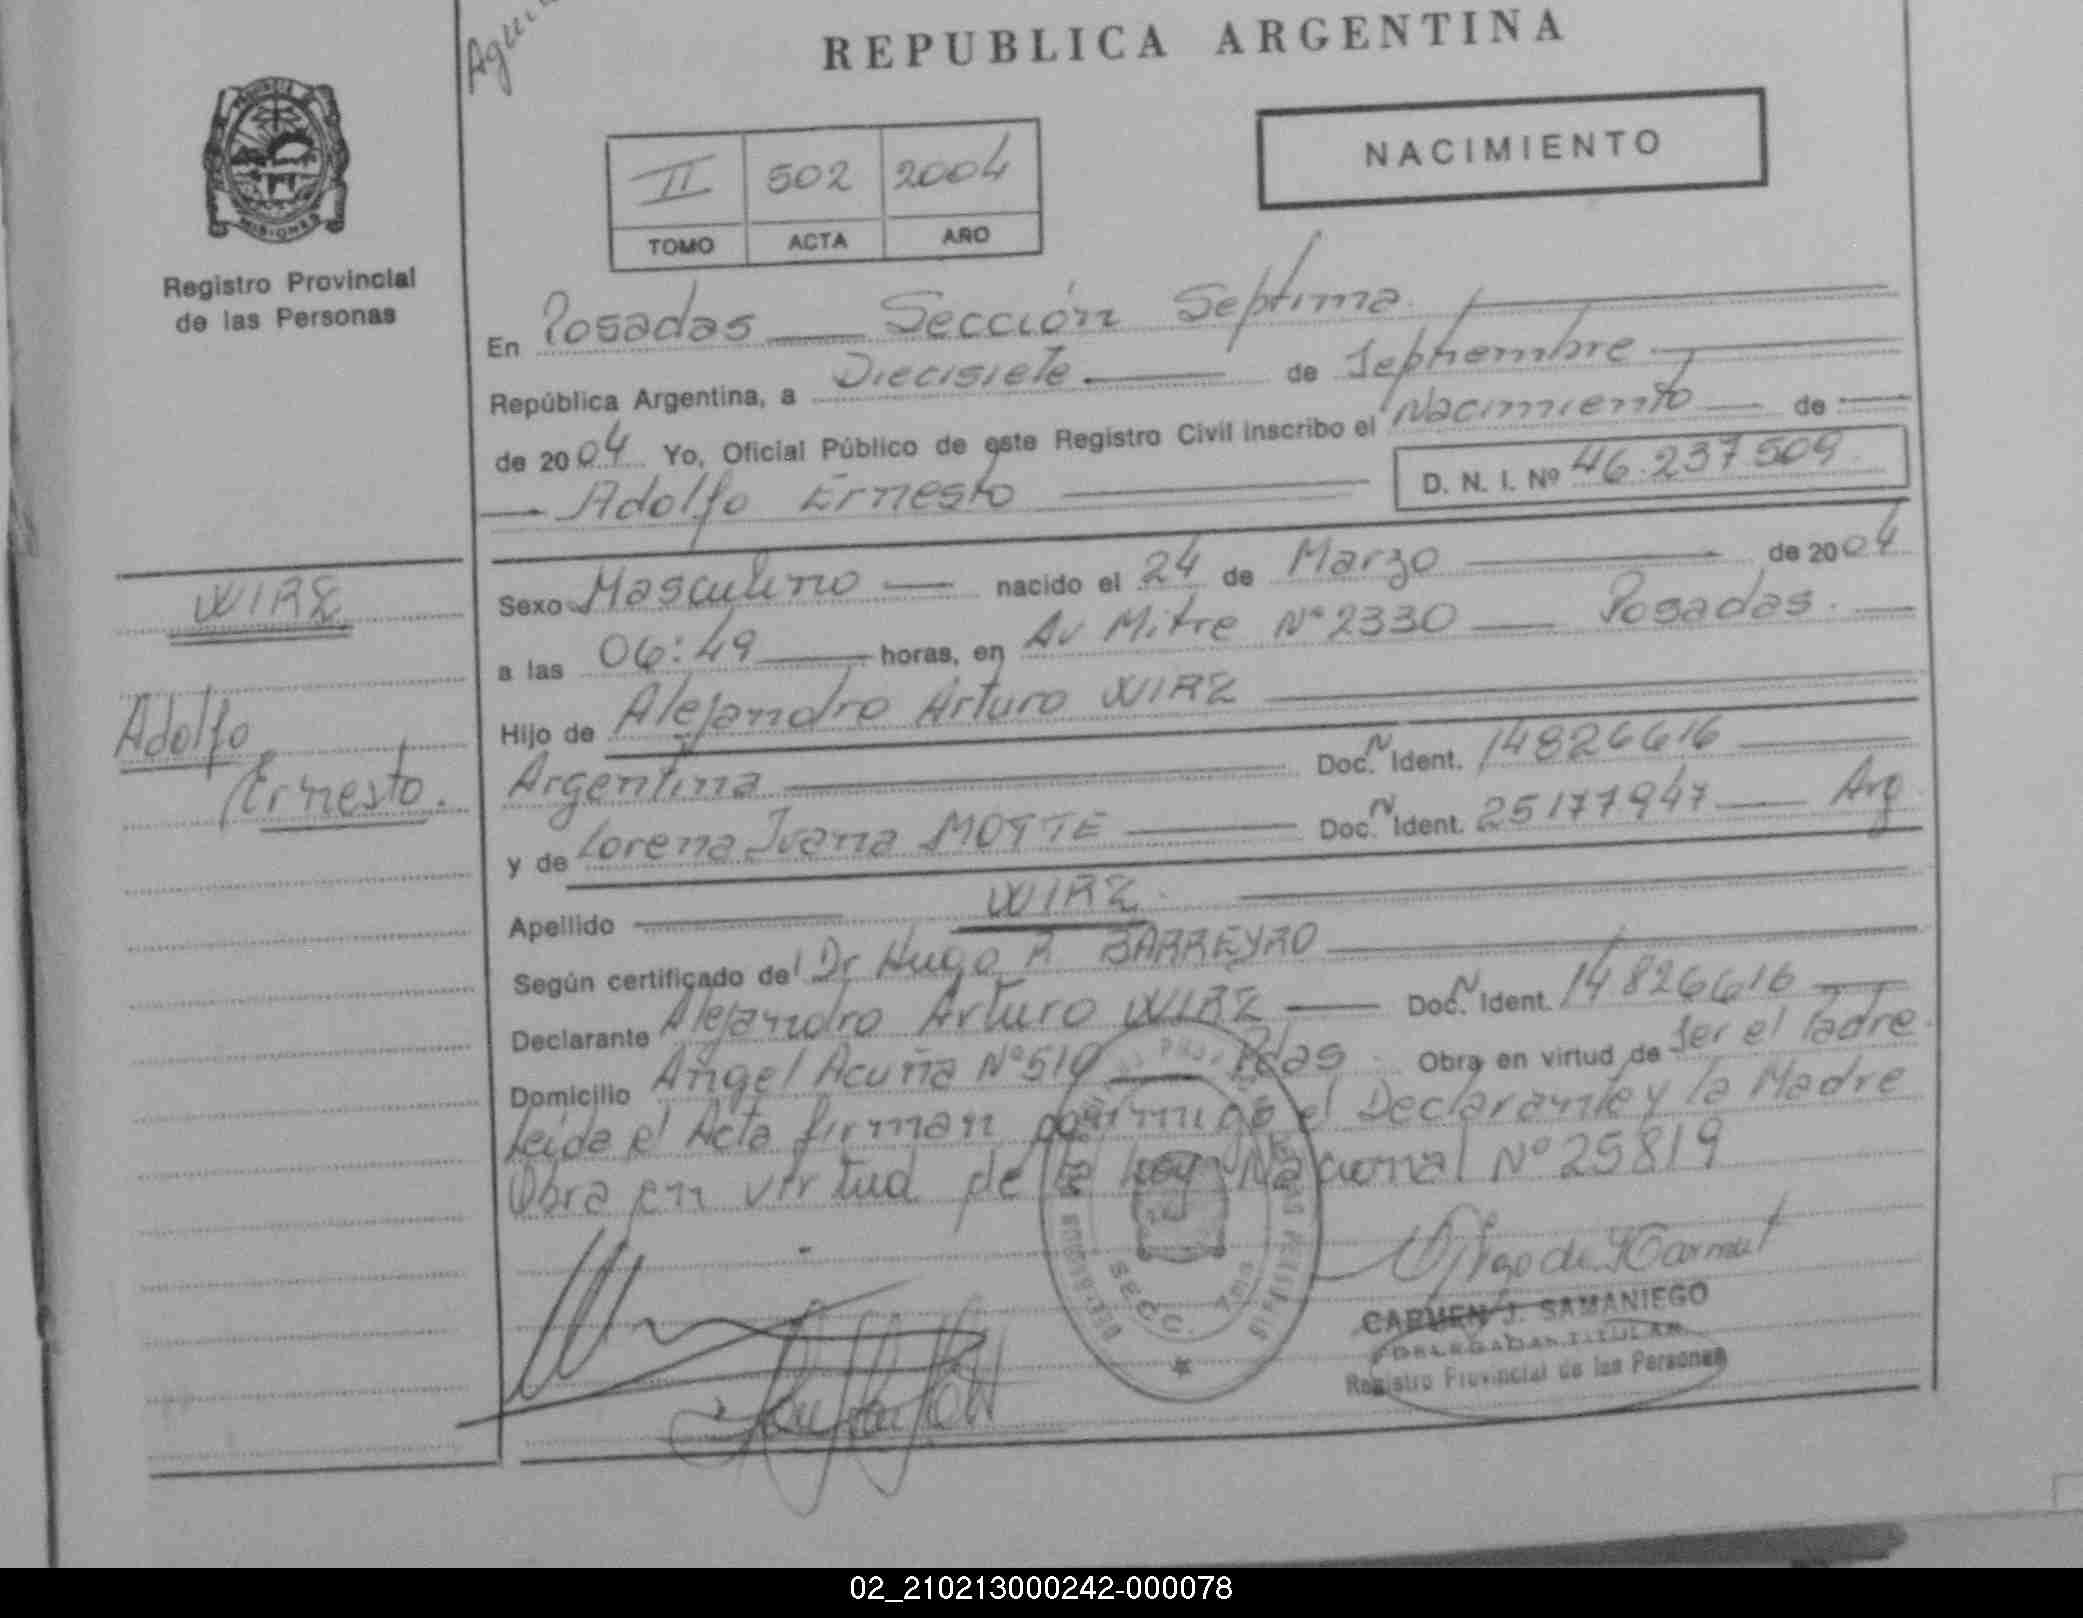 REPUBLICA ARGENTINA
NACIMIENTO
II 502 2004
TOMO ACTA AÑO
PROVINCIA DE
MISIONES
Registro Provincial
de las Personas
En Posadas Sección Septima
República Argentina, a Diecisiete de Septiembre
de 2004 Yo, Oficial Público de este Registro Civil inscribo el Nacimiento de
Adolfo Ernesto D. N. I. Nº 46.237509
WIRZ
Adolfo
Ernesto.
Sexo Masculino nacido el 24 de Marzo de 2004
a las 06:49 horas, en Av Mitre Nº 2330 Posadas.
Hijo de Alejandro Arturo WIRZ
Argentina Doc. N Ident. 14826616
y de Lorena Ivana MOTTE Doc. N Ident. 25177947 Arg
Apellido WIRZ.
Según certificado del Dr Hugo R BARREYRO
Declarante Alejandro Arturo WIRZ Doc. N Ident. 14826616
Domicilio Angel Acuña Nº 510 Pdas. Obra en virtud de Ser el Padre.
Leída el Acta firman conmigo el Declarante y la Madre
Obra en virtud de la Ley Nacional Nº 25819
SECC. 7ma
CARMEN J. SAMANIEGO
DELEGADA TITULAR
Registro Provincial de las Personas
02_210213000242-000078